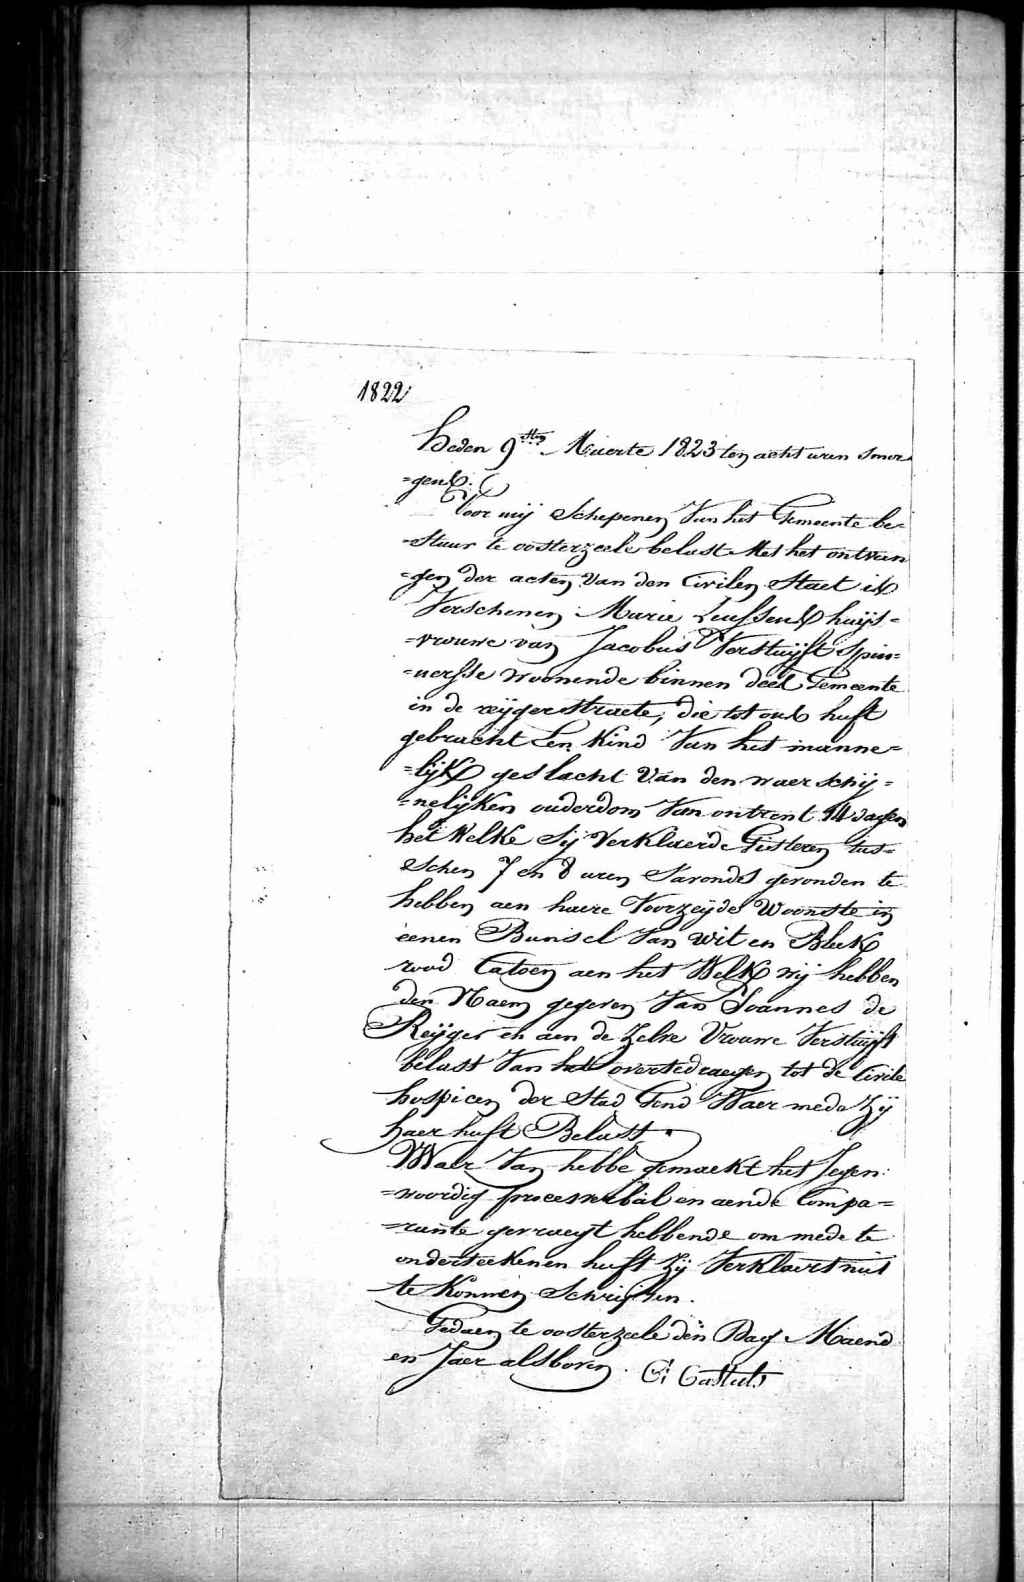 1822
Heden 9sten Maerte 1823 ten acht uren smor
=gens.
Voor mij Schepenen Van het Gemeente be-
=stuur te oosterzeele belast Met het ontvan
=gen der acten Van den Civilen Staet is
Verschenen Marie Leussens huijs=
=vrouwe van Jacobus Verstuijft Spin=
=nersse woonende binnen dees Gemeente
in de reijgerstraete, die tot ons heeft
gebracht Een Kind Van het manne=
=lijk geslacht Van den waerschij=
=nelijken ouderdom Van ontrent 14 dagen
het Welke Sij Verklaerde Gisteren tus=
schen 7 en 8 uren Savonds gevonden te
hebben aen haere Voorzeijde Woonste in
eenen Bunsel Van Wit en Bleek
rood Catoen aen het Welk wij hebben
den Naem gegeven Van Joannes de
Reijger en aen de Zelve Vrouwe Verstuijft
belast Van het overtedraegen tot de Civile
hospicen der Stad Gend Waer mede Zij
haer heeft Belast.
Waer Van hebbe gemaekt het Jegen=
=woordig procesverbal en aende Compa=
=rante gevraegt hebbende om mede te
onderteekenen heeft Zij Verklaert niet
te Konnen Schrijven.
Gedaen te oosterzeele den Dag Maend
en Jaer alsboven.